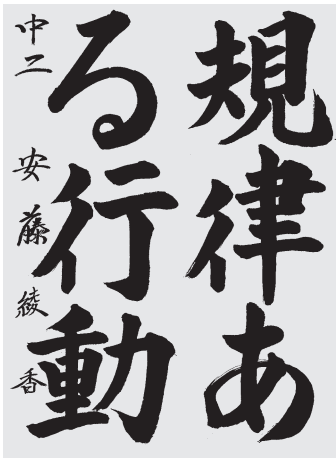 規律あ
る行動
中二 安藤綾香